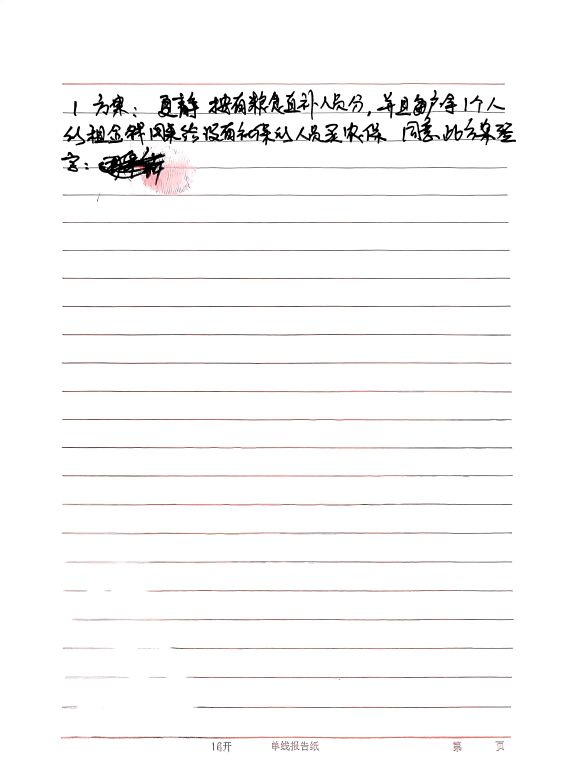 1 方案: 夏静 按有粮食直补人员分, 并且每户拿1个人
的租金钱回来给没有社保的人员买农保 同意此方案签
字:
16开 单线报告纸 第 页